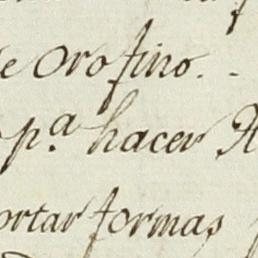 e oro fino. -
p.ª hacer
ortar formas